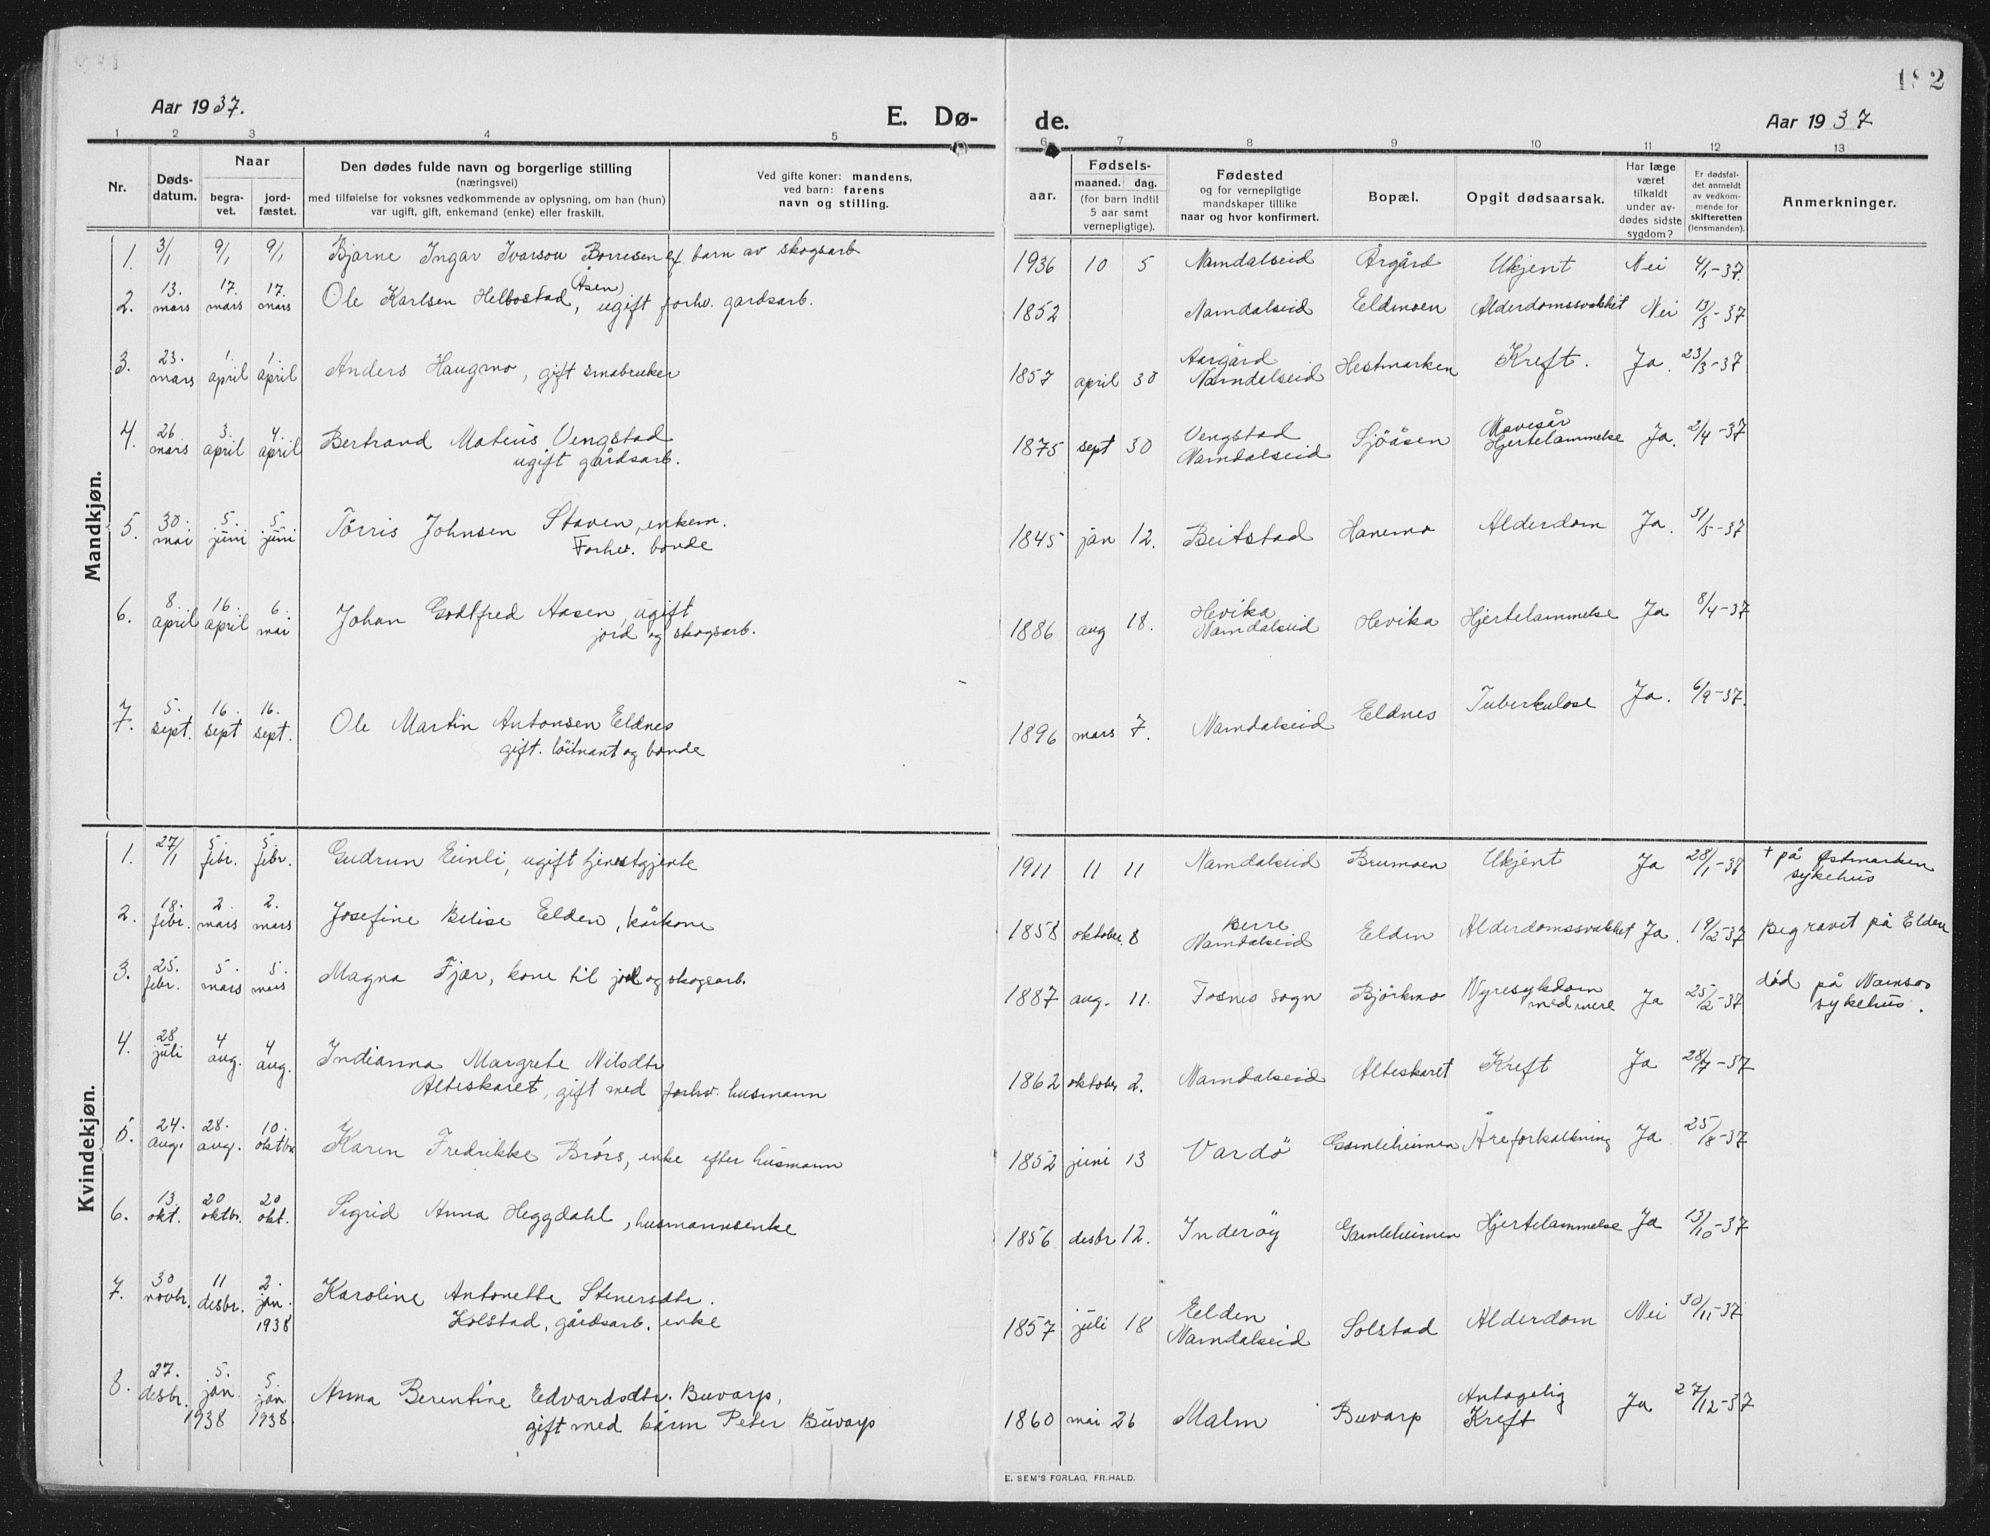 182
Aar 1937.
E. Dø-
de.
Aar 1937
1 2 3 4 5 6 7 8 9 10 11 12 13
Nr.
Døds-
datum.
Naar
begra-
vet.
jord-
fæstet.
Den dødes fulde navn og borgerlige stilling
(næringsvei)
med tilføielse for voksnes vedkommende av oplysning, om han (hun)
var ugift, gift, enkemand (enke) eller fraskilt.
Ved gifte koner: mandens,
ved barn: farens
navn og stilling.
aar.
Fødsels-
maaned. dag.
(for barn indtil
5 aar samt
vernepligtige).
Fødested
og for vernepligtige
mandskaper tillike
naar og hvor konfirmert.
Bopæl.
Opgit dødsaarsak.
Har læge
været
tilkaldt
under av-
dødes sidste
sygdom?
Er dødsfal-
det anmeldt
av vedkom-
mende for
skifteretten
(lensmanden).
Anmerkninger.
Mandkjøn.
1. 3/1 9/1 9/1 Bjarne Ingar Ivarson Borresen barn av skogsarb 1936 10 5 Namdalseid Årgård Ukjent Nei 4/1-37.
2. 13. mars 17. mars 17. mars Ole Karlsen Helbostad, (Åsen) ugift forhv. gardsarb. 1852 Namdalseid Eldmoen Alderdomssvakhet Nei 13/3-37
3. 23. mars 1. april 1. april Anders Haugmo, gift småbruker 1857 april 30 Aargård Namdalseid Hestmarken Kreft. Ja. 23/3-37
4. 26. mars 3. april 4. april Bertrand Matius Vengstad
ugift gårdsarb. 1875 sept 30 Vengstad Namdalseid Sjöåsen Mavesår Hjertelammelse Ja. 2/4-37
5. 30. mai 5. juni 5. juni Törris Johnsen Staven, enkem.
Forhv. bonde 1845 jan 12. Beitstad Hanemo Alderdom Ja. 31/5-37
6. 8. april 16. april 6. mai Johan Godtfred Aasen, ugift
jord og skogsarb. 1886 aug 18. Hevika Namdalseid Hevika Hjertelammelse Ja 8/4-37
7. 5. sept. 16. sept 16. sept. Ole Martin Antonsen Eldnes
gift. löitnant og bonde 1896 mars 7. Namdalseid Eldnes Tuberkulose Ja. 6/9-37.
Kvindekjøn.
1. 27/1 5. febr. 5. febr. Gudrun Einli, ugift tjenestgjente 1911 11 11 Namdalseid Brumoen Ukjent Ja 28/1-36 + på Østmarken
sykehus
2. 18. febr. 2. mars 2. mars Josefine Belise Elden, kårkone 1858 oktober 8 Berre Namdalseid Elden Alderdomssvakhet Ja. 19/2-37 Begravet på Elden
3. 25. febr. 5. mars 5. mars Magna Fjær, kone til jord og skogsarb. 1887 aug. 11. Fosnes sogn Björkmo Nyresykdom med mere Ja 25/2-37 död på Namsos
sykehus.
4. 28 juli 4 aug. 4 aug. Indianna Margrete Nilsdtr
Alteskaret, gift med forhv. husmann 1862 oktober 2. Namdalseid Alteskaret Kreft Ja 28/7-37
5. 24. aug. 28. aug. 10. oktbr Karen Fredrikke Brörs, enke efter husmann 1852 juni 13 Vardö Gamleheimen Åreforkalkning Ja 25/8-37
6. 13. okt. 20 oktbr. 20 okt. Sigrid Anna Heggdahl, husmannsenke 1856 desbr 12. Inderöy Gamleheimen Hjertelammelse Ja 13/10-37
7. 30 novbr. 11 desbr. 2. jan. 1938 Karoline Antonette Stenersdtr.
Solstad, gårdsarb. enke 1857 juli 18 Elden Namdalseid Solstad Alderdom Nei 30/11-37
8. 27. desbr. 5. jan. 1938 5. jan. 1938. Anna Berentine Edvardsdtr. Buvarp,
gift med kårm Peter Buvarp 1860 mai 26 Malm Buvarp Antagelig Kreft Ja 27/12-37
E. SEM'S FORLAG, FR.HALD.